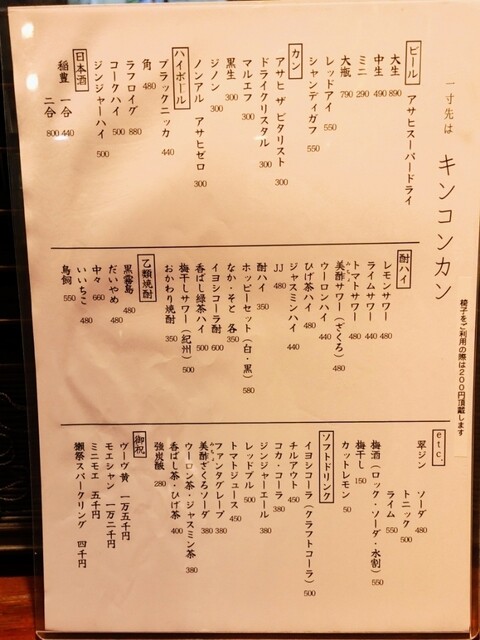 一寸先は キンコンカン
椅子をご利用の際は200円頂戴します
ビール アサヒスーパードライ
大生 890
中生 490
ミニ 290
大瓶 790
レッドアイ 550
シャンディガフ 550
カン
アサヒ ザ ビタリスト 300
ドライクリスタル 300
マルエフ 300
黒生 300
ジノン 300
ノンアル アサヒゼロ 300
ハイボール
ブラックニッカ 440
角 480
ラフロイグ 880
コークハイ 500
ジンジャーハイ 500
日本酒
稲豊 一合 440
二合 800
酎ハイ
レモンサワー 480
ライムサワー 480
トマトサワー 480
美酢サワー(ざくろ) 480
ウーロンハイ 440
ひげ茶ハイ 480
ジャスミンハイ 440
JJ 480
酎ハイ 350
ホッピーセット(白・黒) 580
なか・そと 各350
イヨシコーラ酎 600
香ばし緑茶ハイ 500
梅干しサワー(紀州) 500
おかわり焼酎 350
乙類焼酎
黒霧島 480
だいやめ 480
中々 660
いいちこ 480
鳥飼 550
etc.
翠ジン ソーダ 480
トニック 500
ライム 550
梅酒(ロック・ソーダ・水割) 550
梅干し 150
カットレモン 50
ソフトドリンク
イヨシコーラ(クラフトコーラ) 500
チルアウト 450
コカ・コーラ 380
ジンジャーエール 380
レッドブル 500
トマトジュース 450
ファンタグレープ 380
美酢ざくろソーダ 380
ウーロン茶・ジャスミン茶 380
香ばし茶・ひげ茶 400
強炭酸 280
御祝
ヴーヴ黄 一万五千円
モエシャン 一万二千円
ミニモエ 五千円
獺祭スパークリング 四千円